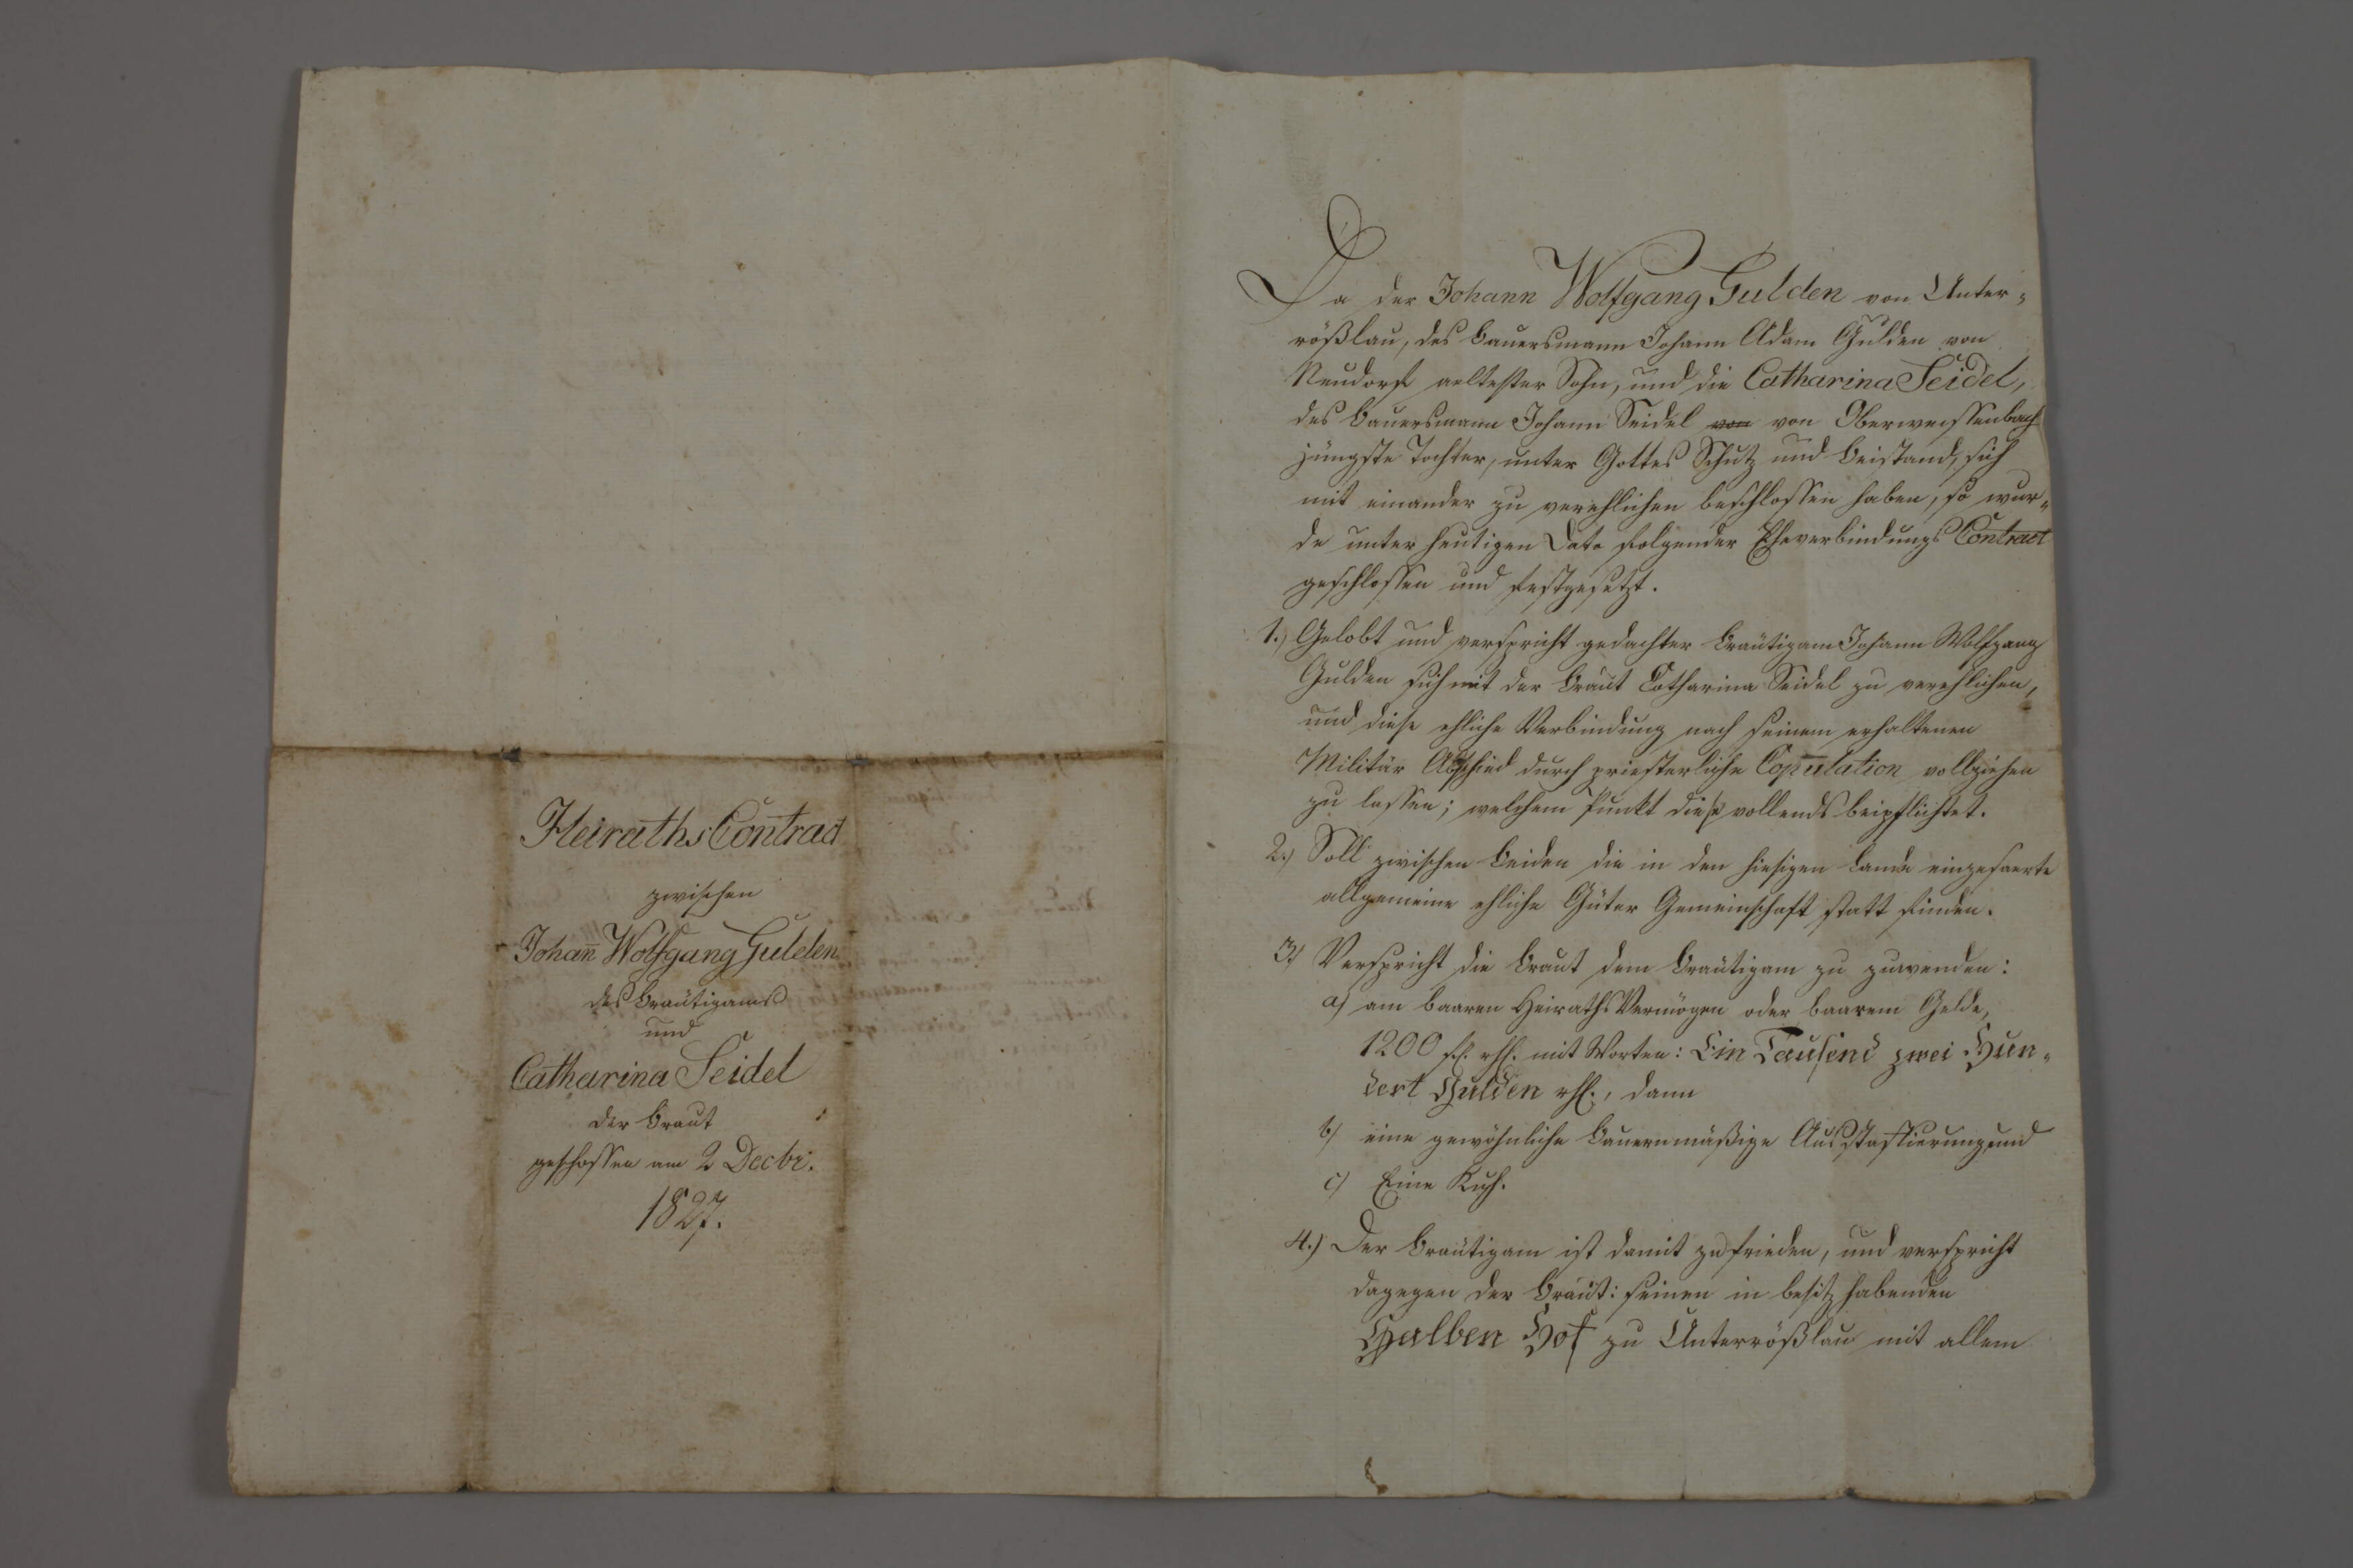 Heiraths Contract
zwischen
Johañ Wolfgang Gulden
des Bräutigams
und
Catharina Seidel
der Braut
geschossen am 2 Decbr.
1827.
Da der Johann Wolfgang Gulden von Unter-
rößlau, des Bauersmann Johann Adam Gulden von
Neudorf aeltester Sohn, und die Catharina Seidel,
des Bauersmann Johann Seidel von von Oberweissenbach
jüngste Tochter, unter Gottes Schutz und Beistand, sich
mit einander zu verehlichen beschlossen haben, so wur-
de unter heutigen Dato folgender Eheverbindungs Contract
geschlossen und festgesetzt.
1.) Gelobt und verspricht gedachter Bräutigam Johann Wolfgang
Gulden sich mit der Braut Catharina Seidel zu verehlichen,
und diese ehliche Verbindung nach seinem erhaltenen
Militär Abschied durch priesterliche Copulation vollziehen
zu lassen; welchem Punkt diese vollends beipflichtet.
2.) Soll zwischen Beiden die in den hiesigen Lande eingefuerte
allgemeine ehliche Güter Gemeinschaft statt finden.
3) Verspricht die Braut dem Bräutigam zu zuwenden:
a) am baaren Heiraths Vermögen oder baarem Gelde,
1200 fl. rhl. mit Worten: Ein Tausend zwei Hun-
dert Gulden rhl., dann
b) eine gewöhnliche Bauernmäßige Ausstaffierung, und
c) Eine Kuh.
4.) Der Bräutigam ist damit zufrieden, und verspricht
dagegen der Braut: seinen in besitz habenden
Halben Hof zu Unterrößlau mit allem